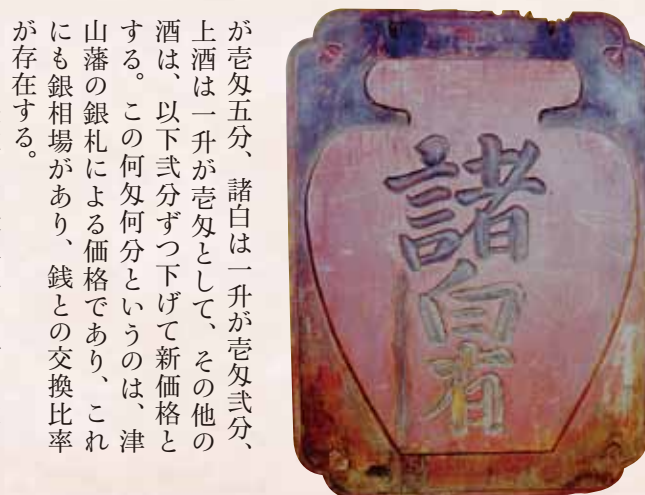 が壱匁五分、諸白は一升が壱匁弐分、
上酒は一升が壱匁として、その他の
酒は、以下弐分ずつ下げて新価格と
する。この何匁何分というのは、津
山藩の銀札による価格であり、これ
にも銀相場があり、銭との交換比率
が存在する。
諸白有